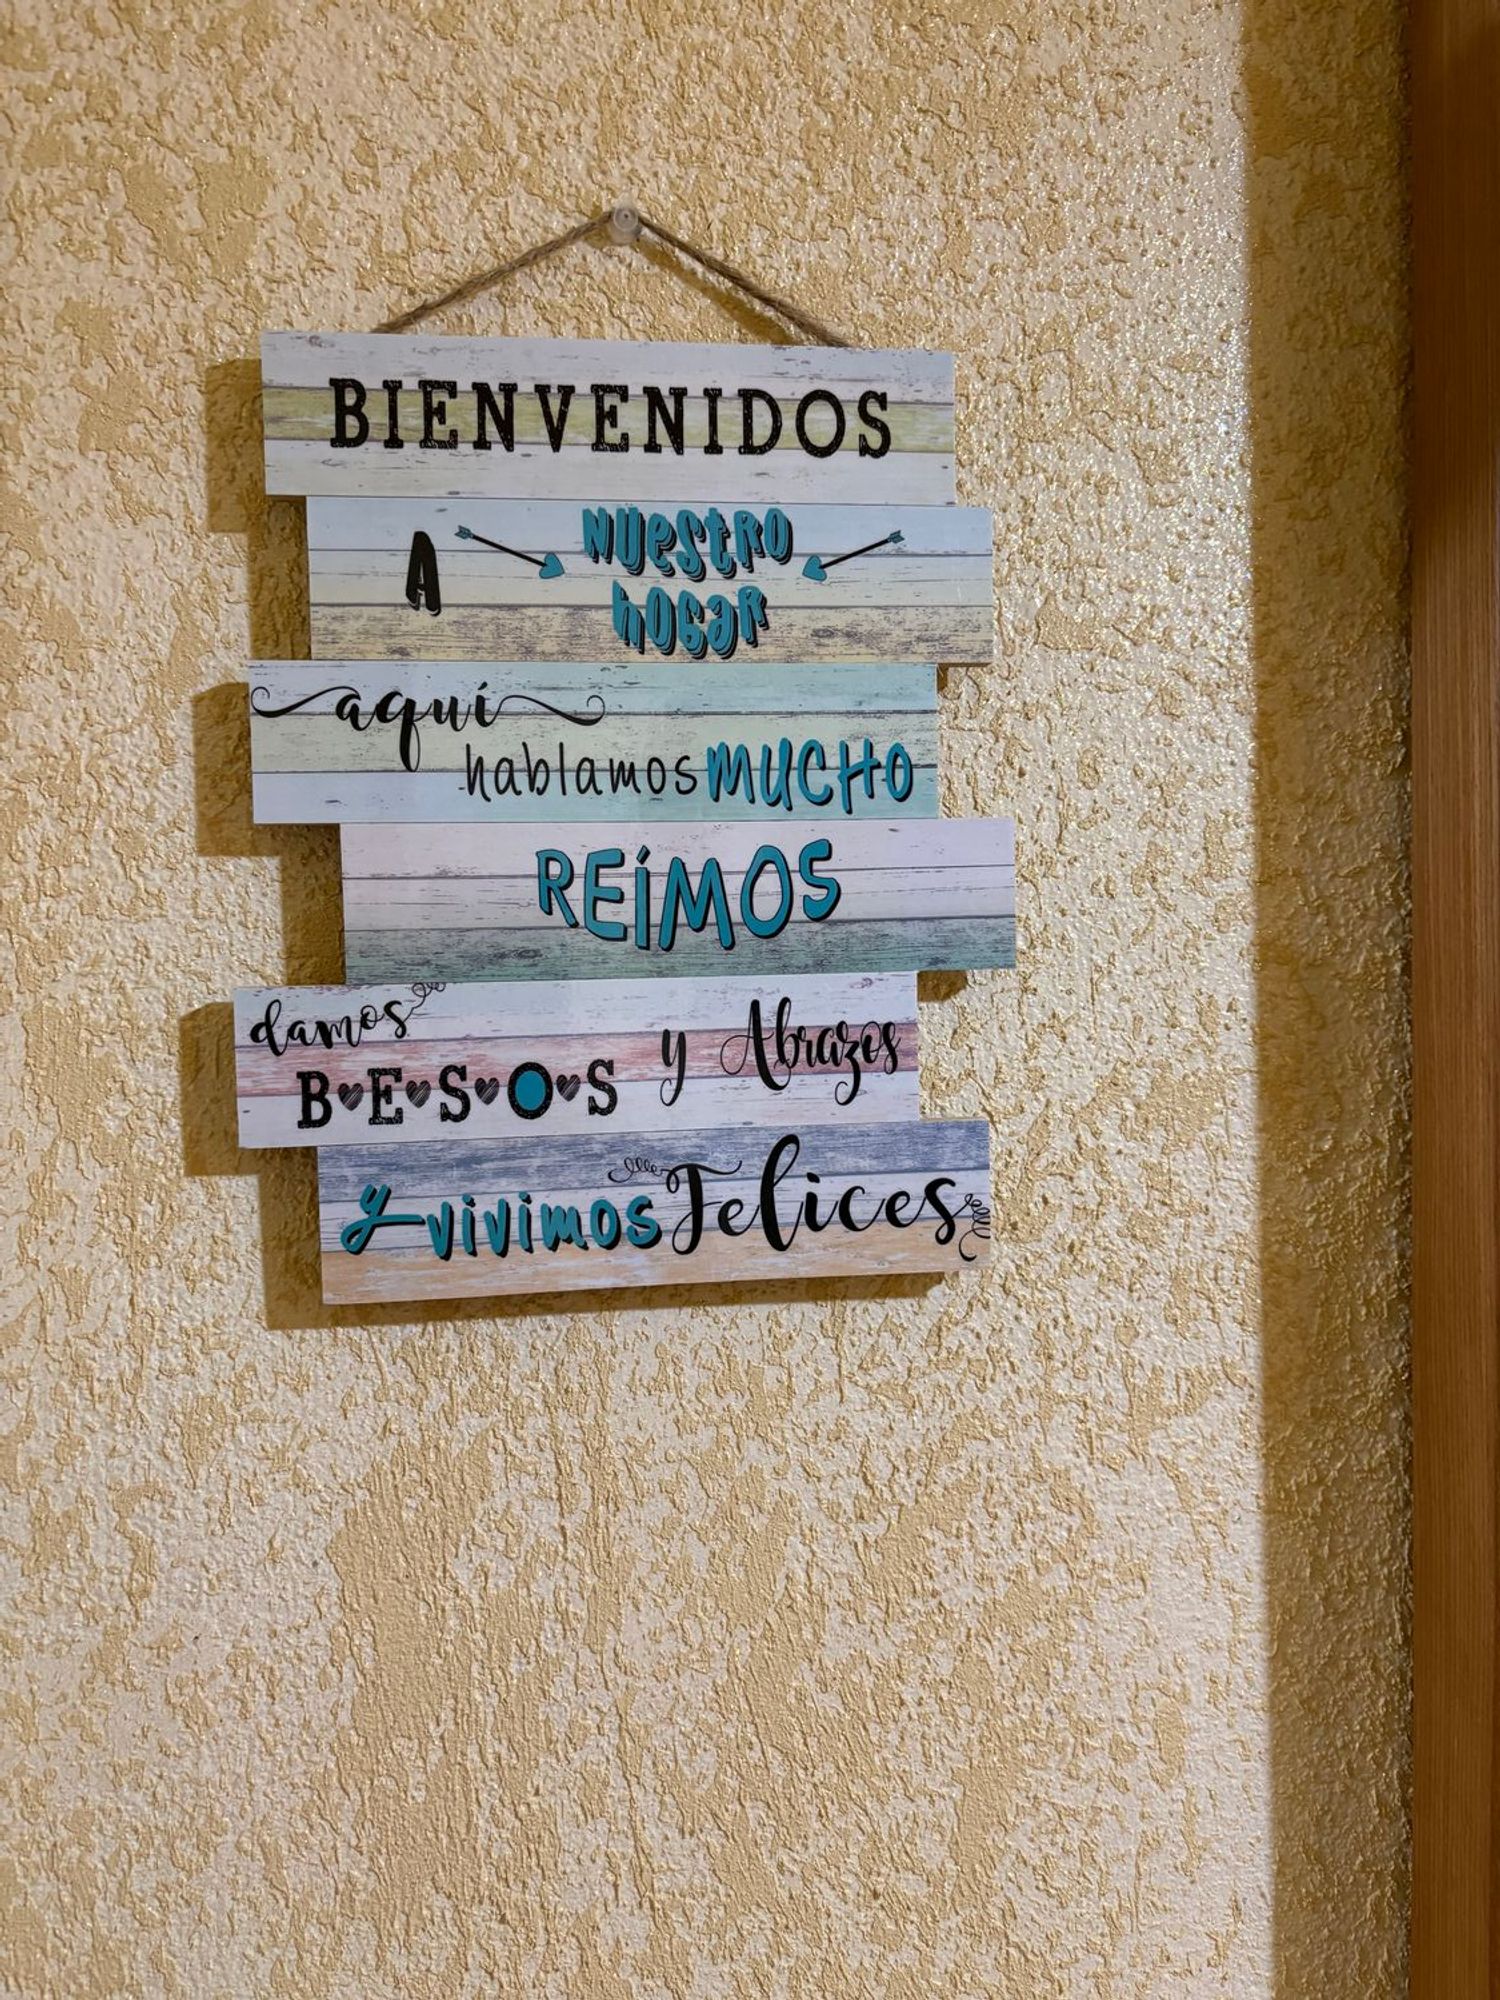 BIENVENIDOS
A NUeStRO
hOGaR
aquí
hablamos MUCHO
REÍMOS
damos
B♥E♥S♥O♥S y Abrazos
y vivimos Felices